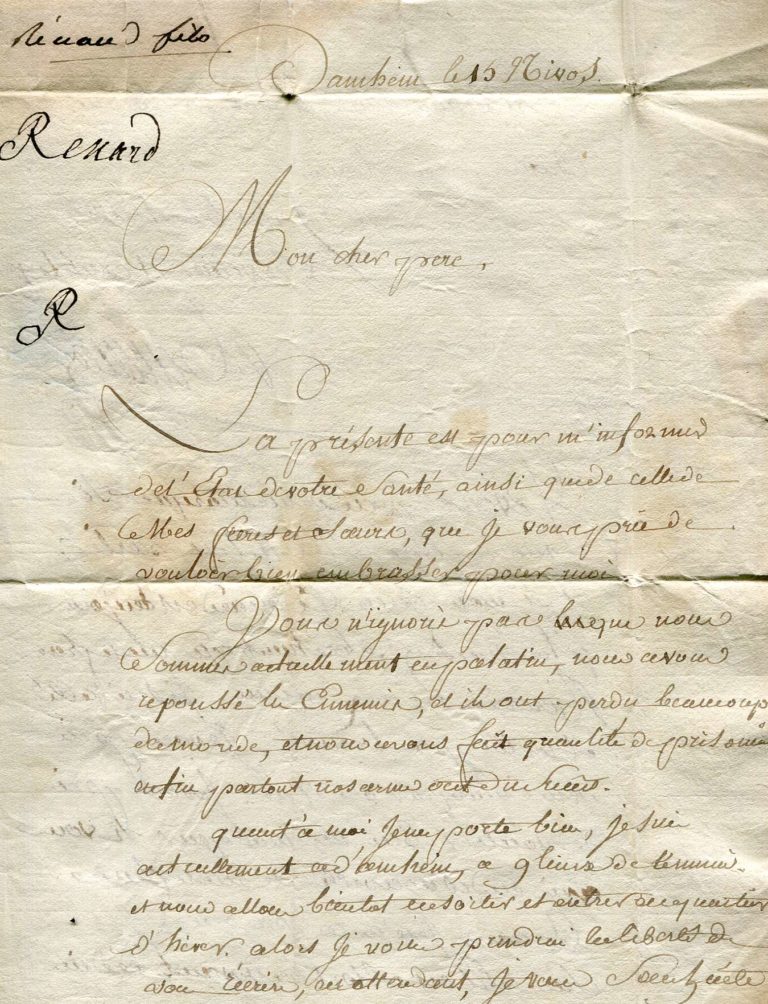 Renard fils
Damhem le 15 Nivos
Renard
Mon cher pere,
R
La présente est pour m'informer
de l'Etat de votre Santé, ainsi que de celle de
Mes freres et Sœurs, que je vous prie de
vouloir bien embrasser pour moi
Vous n'ignorié pas que nous
Sommes actuellement en palatin, nous avons
repoussé les Ennemis, et ils ont perdu beaucoup
de monde, et nous avons fait quantité de
enfin partout nos arme ont du Succès.
quant à moi Je me porte bien, je suis
actuellement a d'amhem, a 9 lieus de
et nous allons bientot en sortir et entrer en quartier
d'hiver. alors Je vous prendrai la liberté de
vous écrire, en attendant, Je vous Souhaite